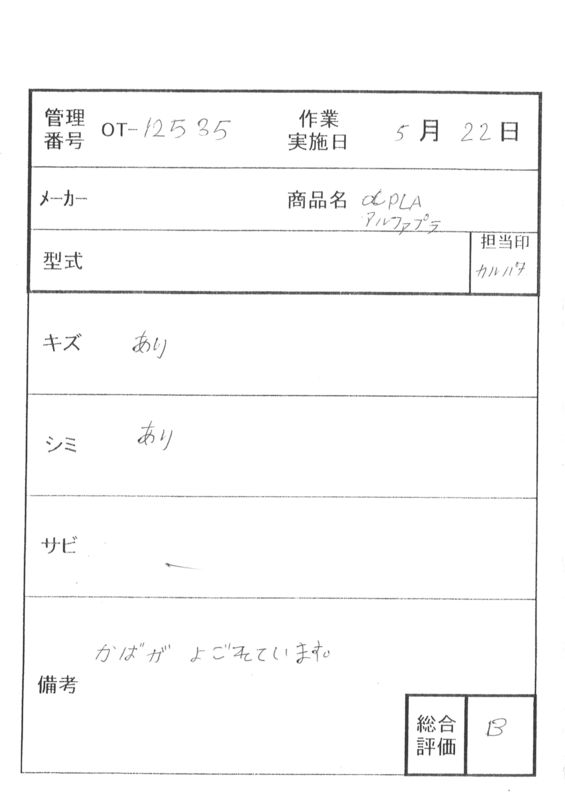 管理番号 OT-12535 作業実施日 5月22日
メーカー 商品名 αPLA
アルファプラ
型式 担当印
カルバタ
キズ あり
シミ あり
サビ -
備考 かばがよごれています。
総合評価 B